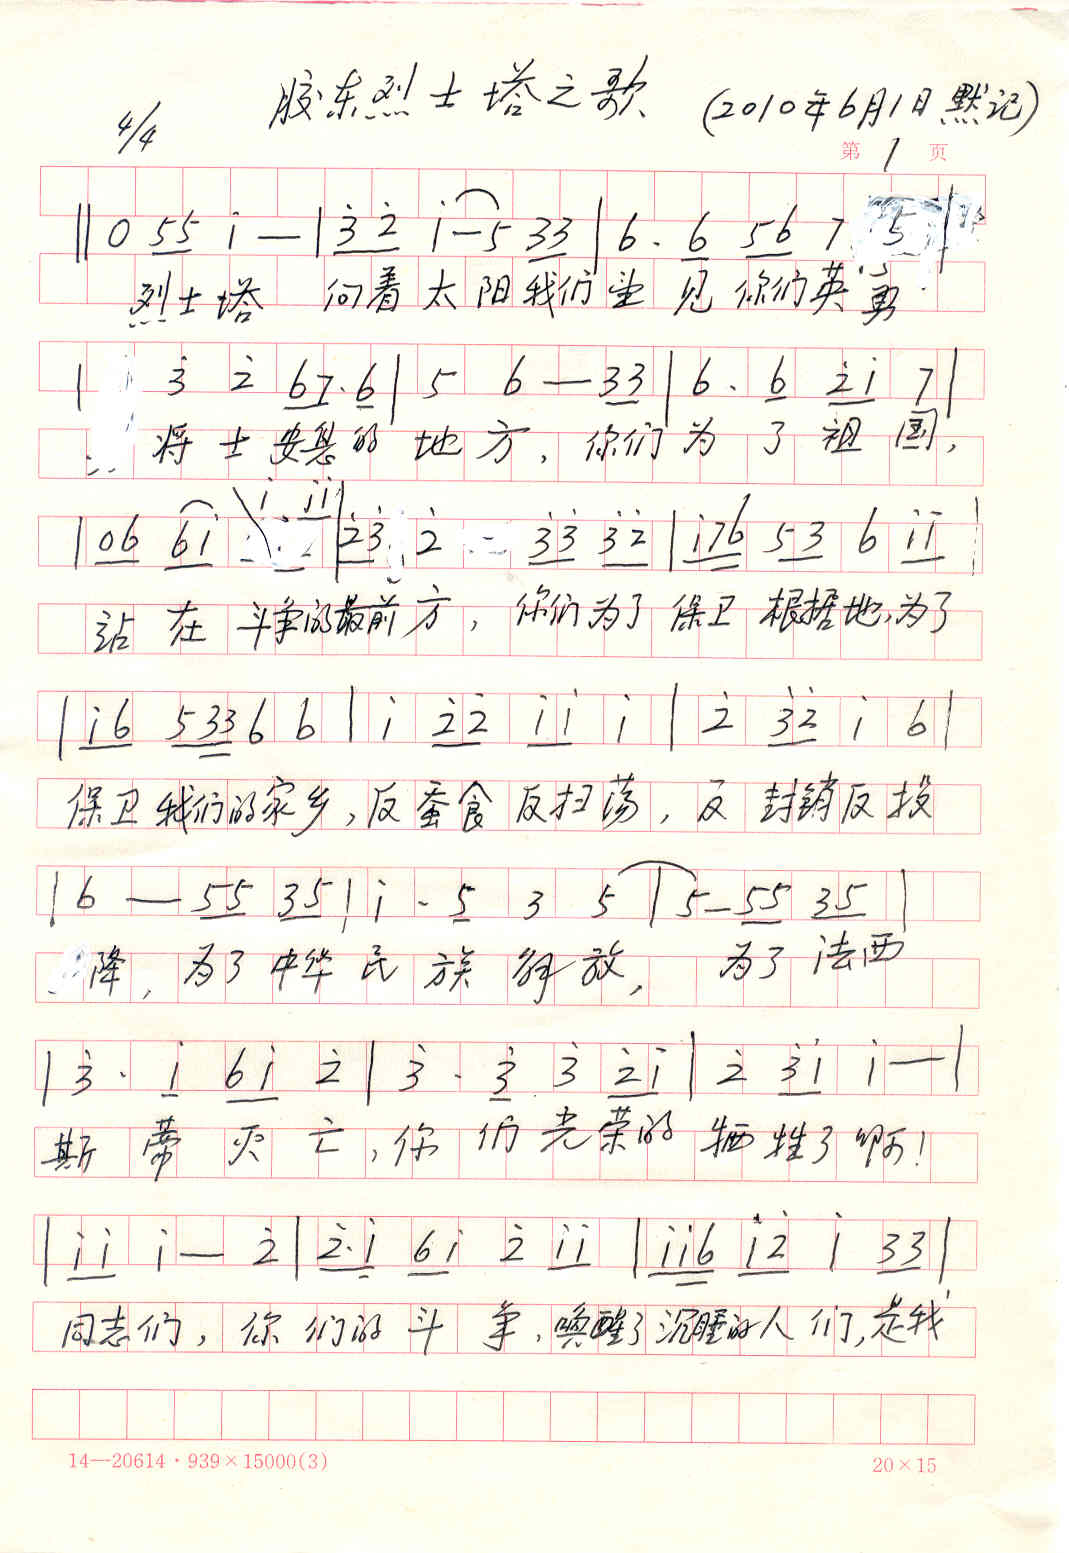 胶东烈士塔之歌 (2010年6月1日默记)
4/4
第 1 页
‖ 0 55 i — | 3̇ 2̇ i — 5 33 | 6 · 6 56 7 5 |
烈士塔 向着太阳我们望见你们英勇
| 3̇ 2̇ 67·6 | 5 6 — 33 | 6 · 6 2̇i 7 |
将士安息的地方，你们为了祖国，
i ii
| 06 6i | 2̇3̇ 2̇ — 3̇3̇ 3̇2̇ | i76 53 6 ii |
站在斗争的最前方，你们为了保卫根据地，为了
| i6 533 6 6 | i 2̇2̇ ii i | 2̇ 3̇2̇ i 6 |
保卫我们的家乡，反蚕食反扫荡，反封销反投
| 6 — 55 35 | i · 5 3 5 | 5 — 55 35 |
降，为了中华民族解放，为了法西
| 3̇ · i 6i 2̇ | 3̇ · 3̇ 3̇ 2̇i | 2̇ 3̇i i — |
斯蒂灭亡，你们光荣的牺牲了啊！
| ii i — 2̇ | 2̇·i 6i 2̇ ii | ii6 i2̇ i 33 |
同志们，你们的斗争，唤醒了沉睡的人们，是我
14—20614·939×15000(3) 20×15